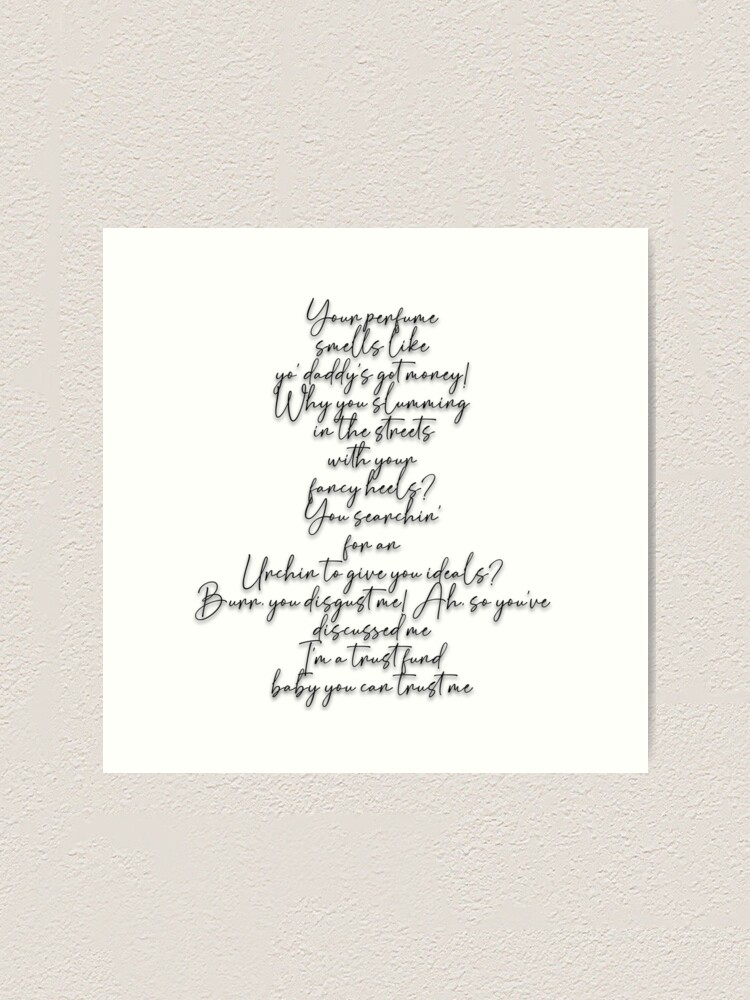 Your perfume
smells like
yo' daddy's got money!
Why you slumming
in the streets
with your
fancy heels?
You searchin'
for an
Urchin to give you ideals?
Burr, you disgust me! Ah, so you've
discussed me
I'm a trust fund
baby you can trust me